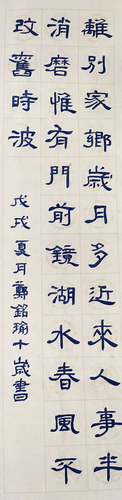 離別家鄉歲月多近來人事半
消磨惟有門前鏡湖水春風不
改舊時波
戊戌夏月鄭銘瑜十歲書